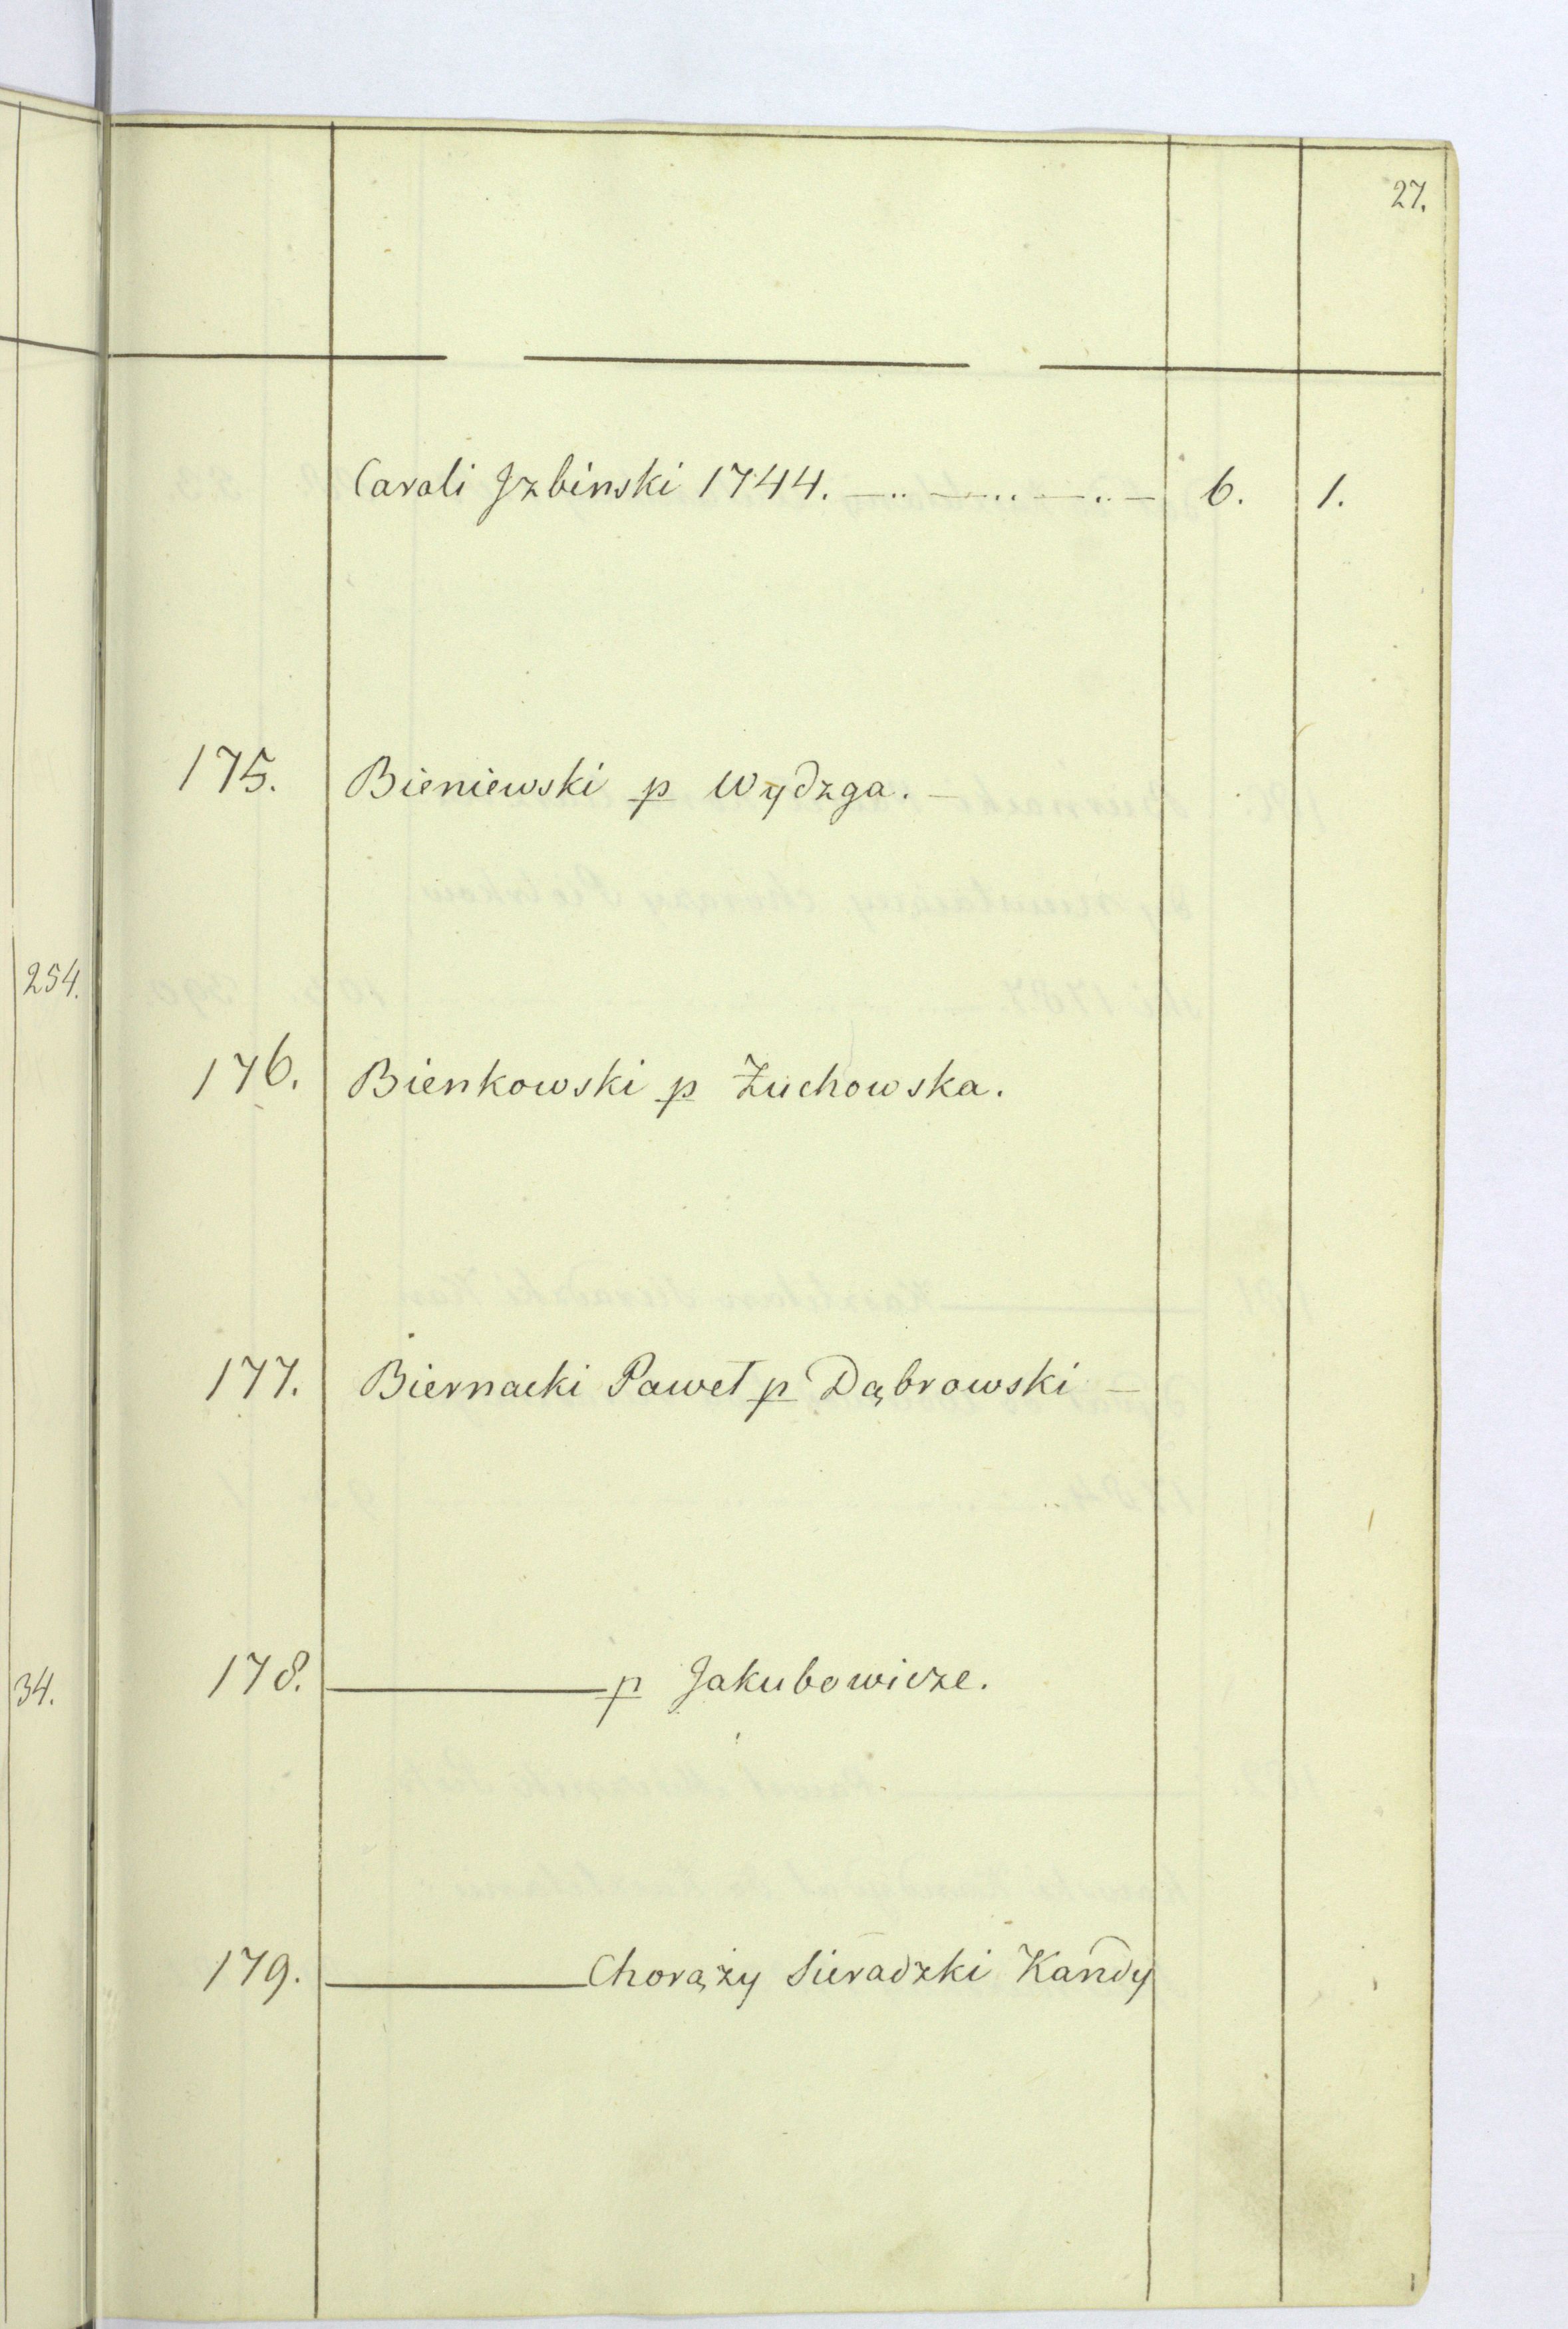 27.
Caroli Jzbinski 1744. 6. 1.
175. Bieniewski p Wydzga. —
254.
176. Bienkowski p Żuchowska.
177. Biernacki Paweł p Dąbrowski —
34.
178. ——— p Jakubowicze.
179. ——— Chorąży Sieradzki Kandy